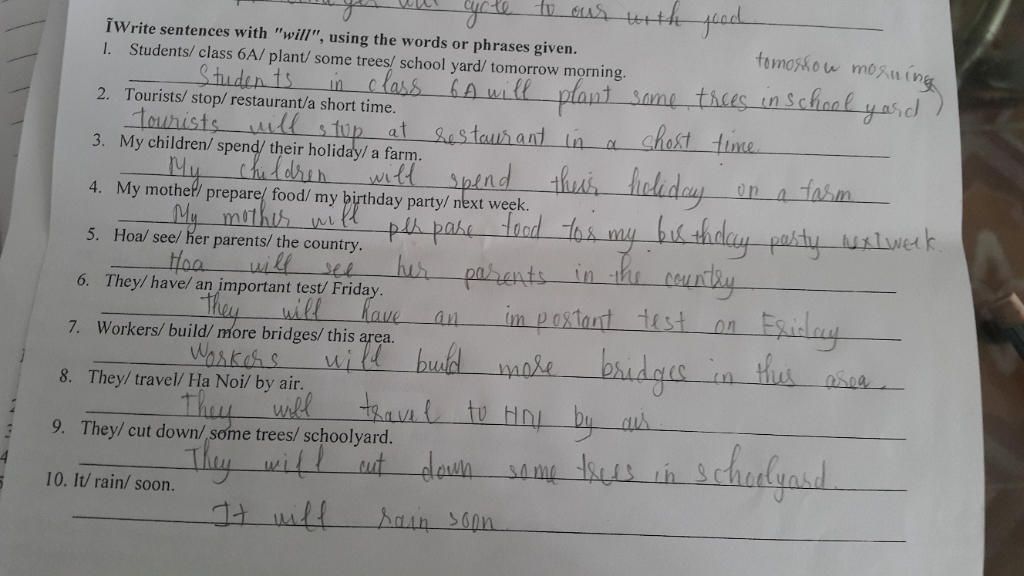 cycle to our with good
ĨWrite sentences with "will", using the words or phrases given.
1. Students/ class 6A/ plant/ some trees/ school yard/ tomorrow morning.
tomorrow morning
Students in class 6A will plant some trees in school yard
2. Tourists/ stop/ restaurant/a short time.
Tourists will stop at restaurant in a short time
3. My children/ spend/ their holiday/ a farm.
My children will spend their holiday on a farm
4. My mother/ prepare/ food/ my birthday party/ next week.
My mother will prepare food for my birthday party next week.
5. Hoa/ see/ her parents/ the country.
Hoa will see her parents in the country
6. They/ have/ an important test/ Friday.
They will have an important test on Friday
7. Workers/ build/ more bridges/ this area.
Workers will build more bridges in this area.
8. They/ travel/ Ha Noi/ by air.
They will travel to HN by air
9. They/ cut down/ some trees/ schoolyard.
They will cut down some trees in schoolyard.
10. It/ rain/ soon.
It will rain soon